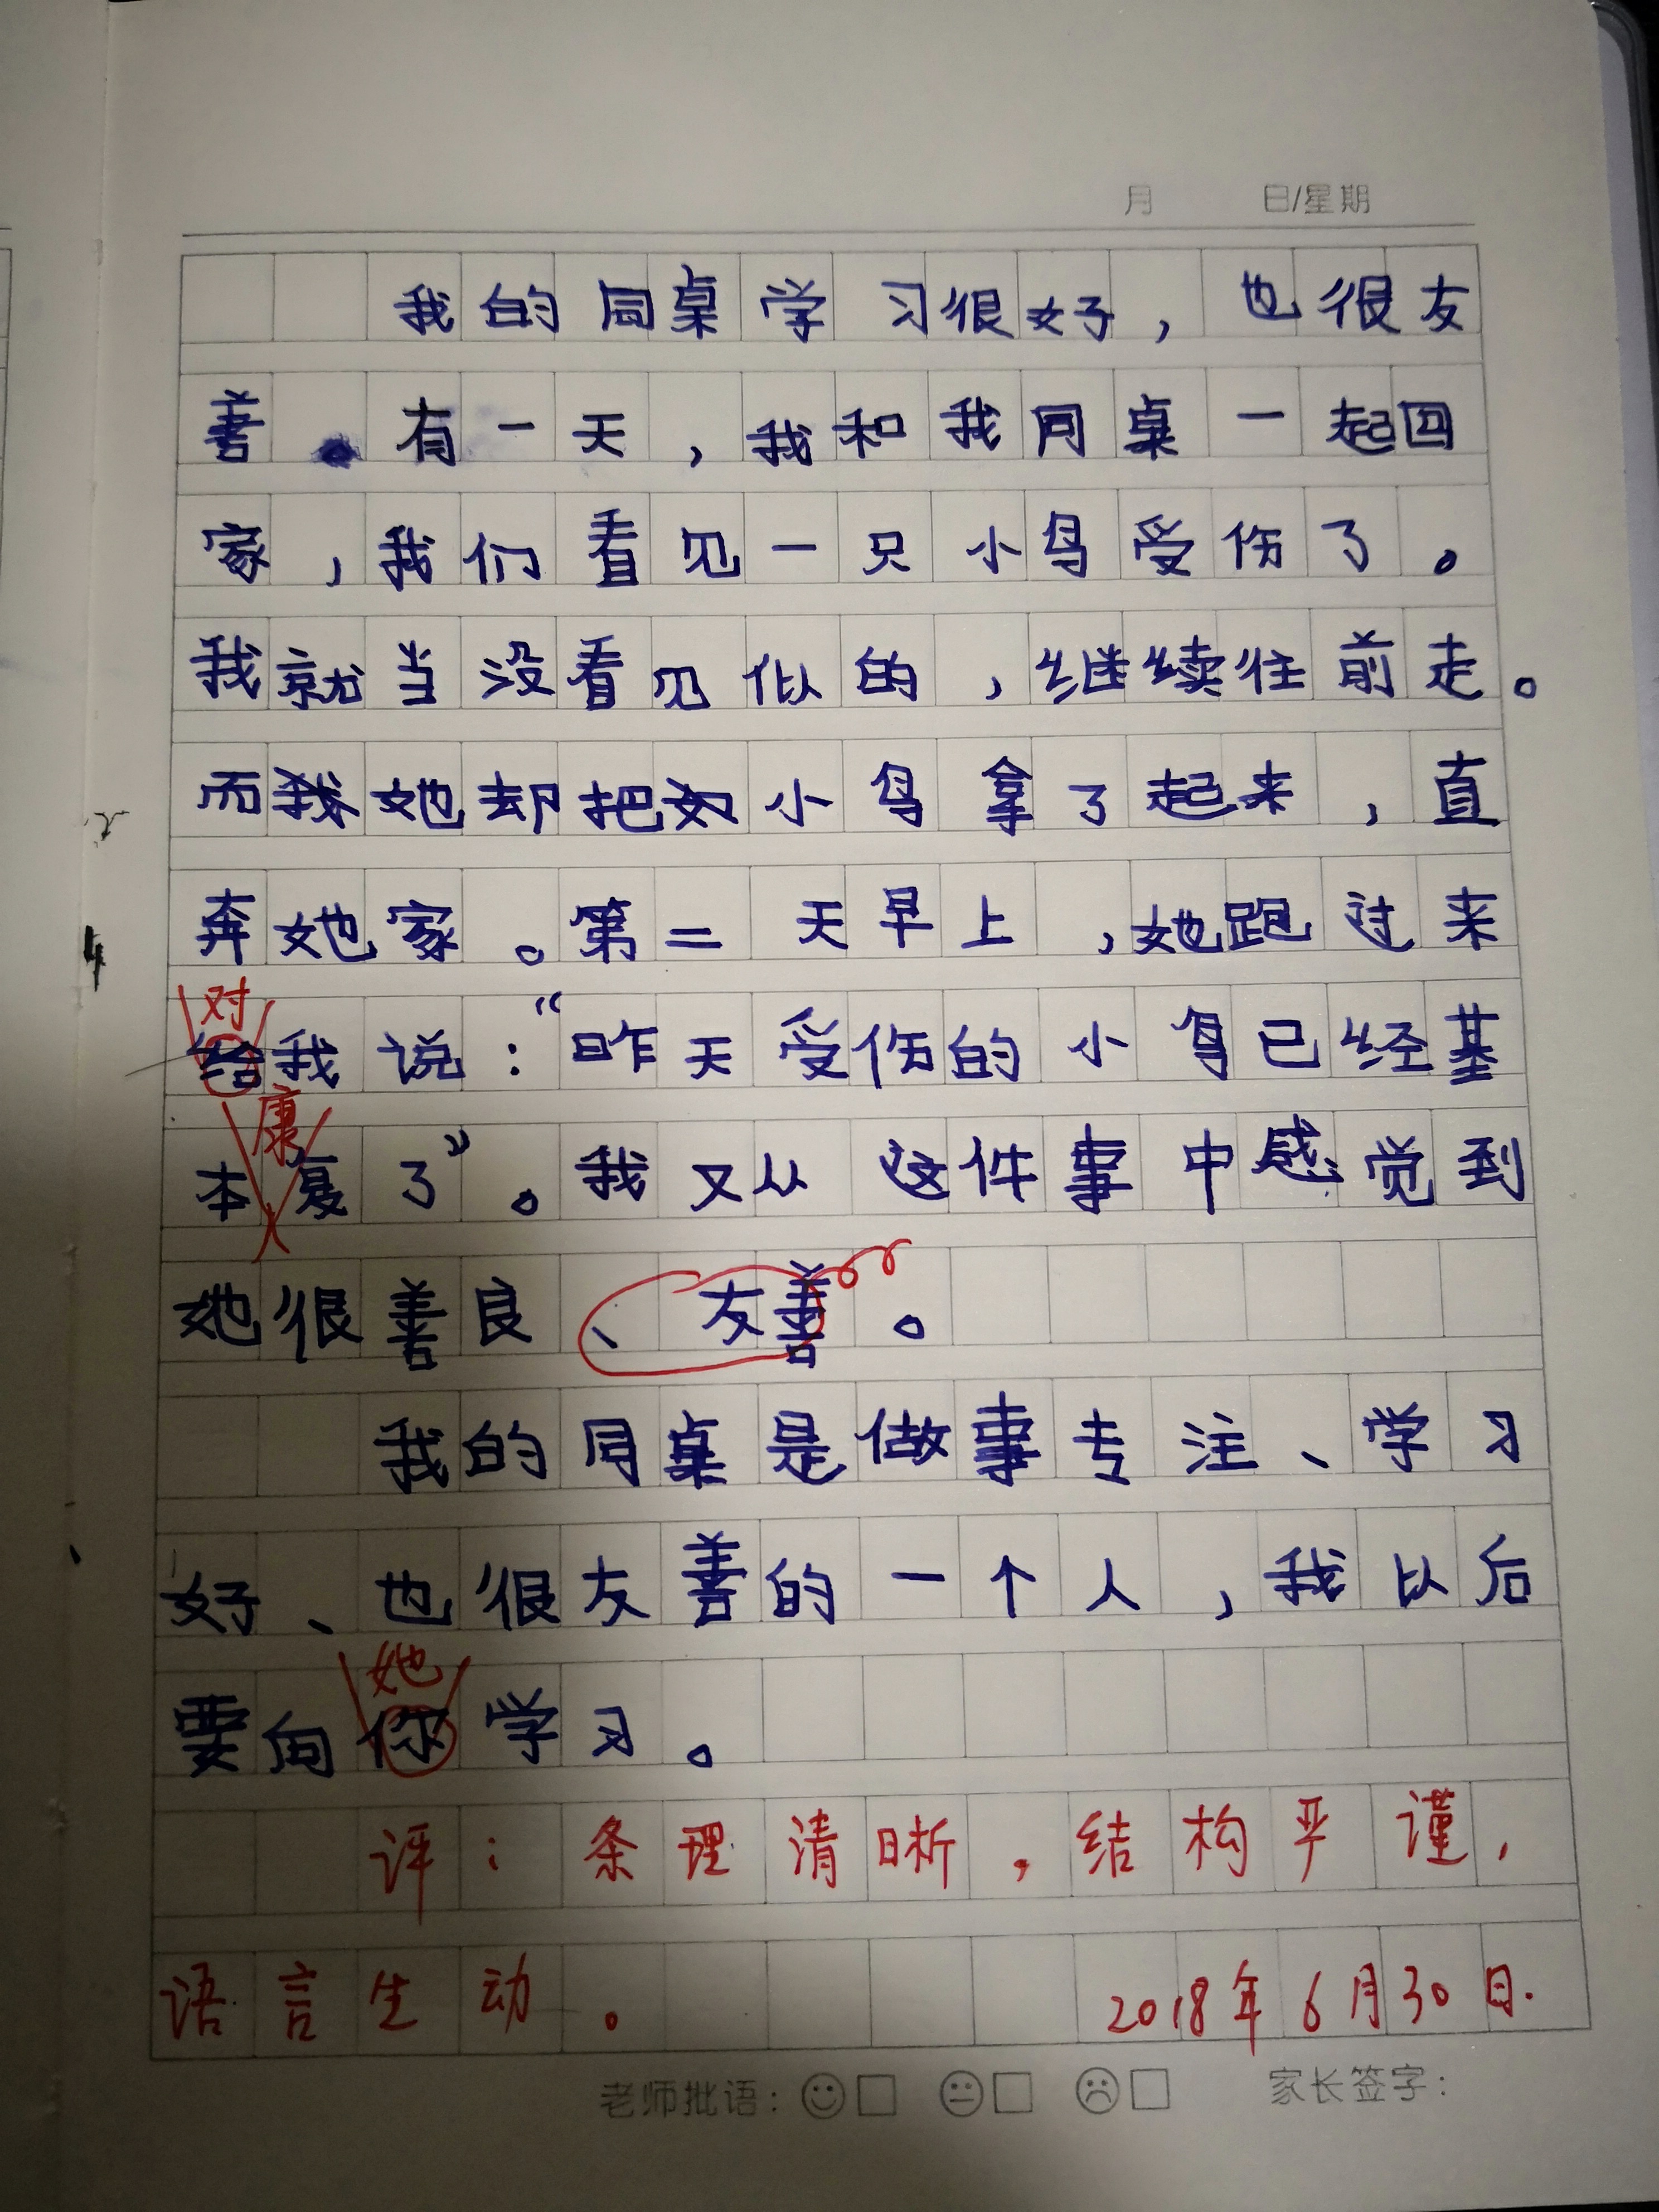 月 日/星期
我的同桌学习很好，也很友
善。有一天，我和我同桌一起回
家，我们看见一只小鸟受伤了。
我就当没看见似的，继续往前走。
而她却把小鸟拿了起来，直
奔她家。第二天早上，她跑过来
对
给我说：“昨天受伤的小鸟已经基
康
本复了”。我又从这件事中感觉到
她很善良、友善。
我的同桌是做事专注、学习
好、也很友善的一个人，我以后
她
要向你学习。
评：条理清晰，结构严谨，
语言生动。 2018年6月30日.
老师批语： 家长签字：